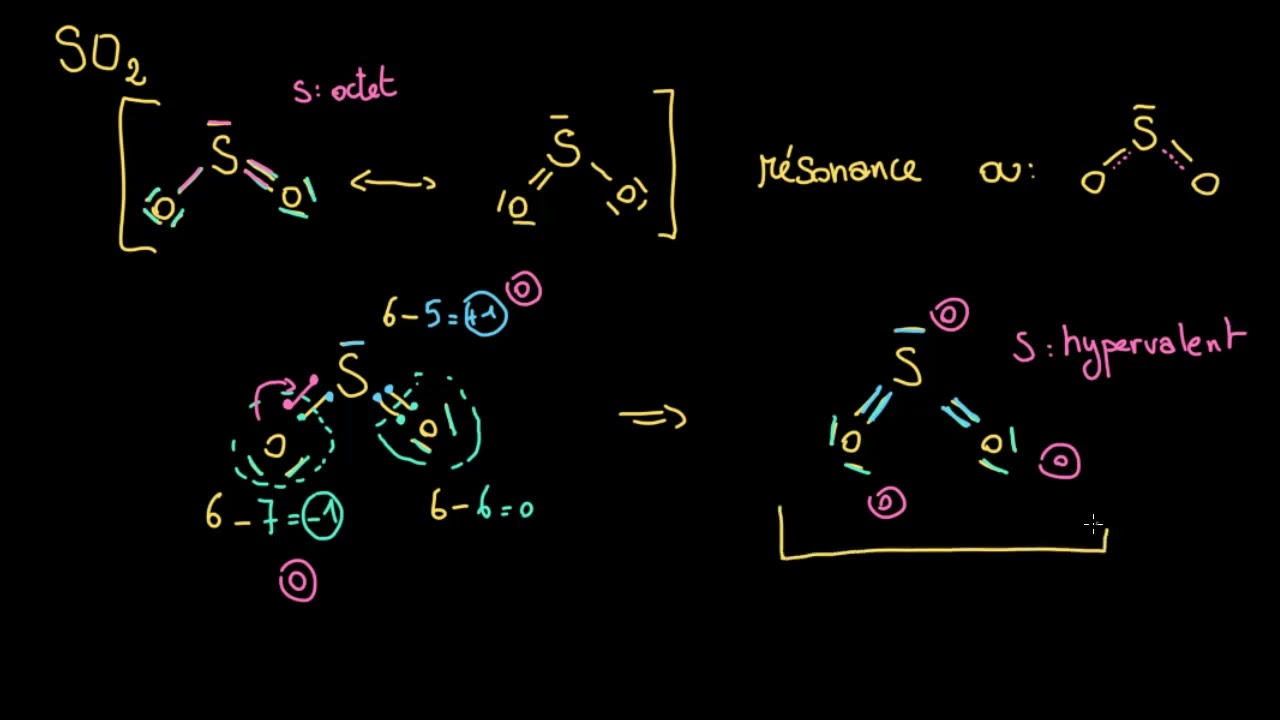 SO2
S: octet
S O O
S O O
résonance ou:
S O O
6-5=+1 0
S O O
6-7=-1
0
6-6=0
⇒
S 0
O O
0 0
S: hypervalent